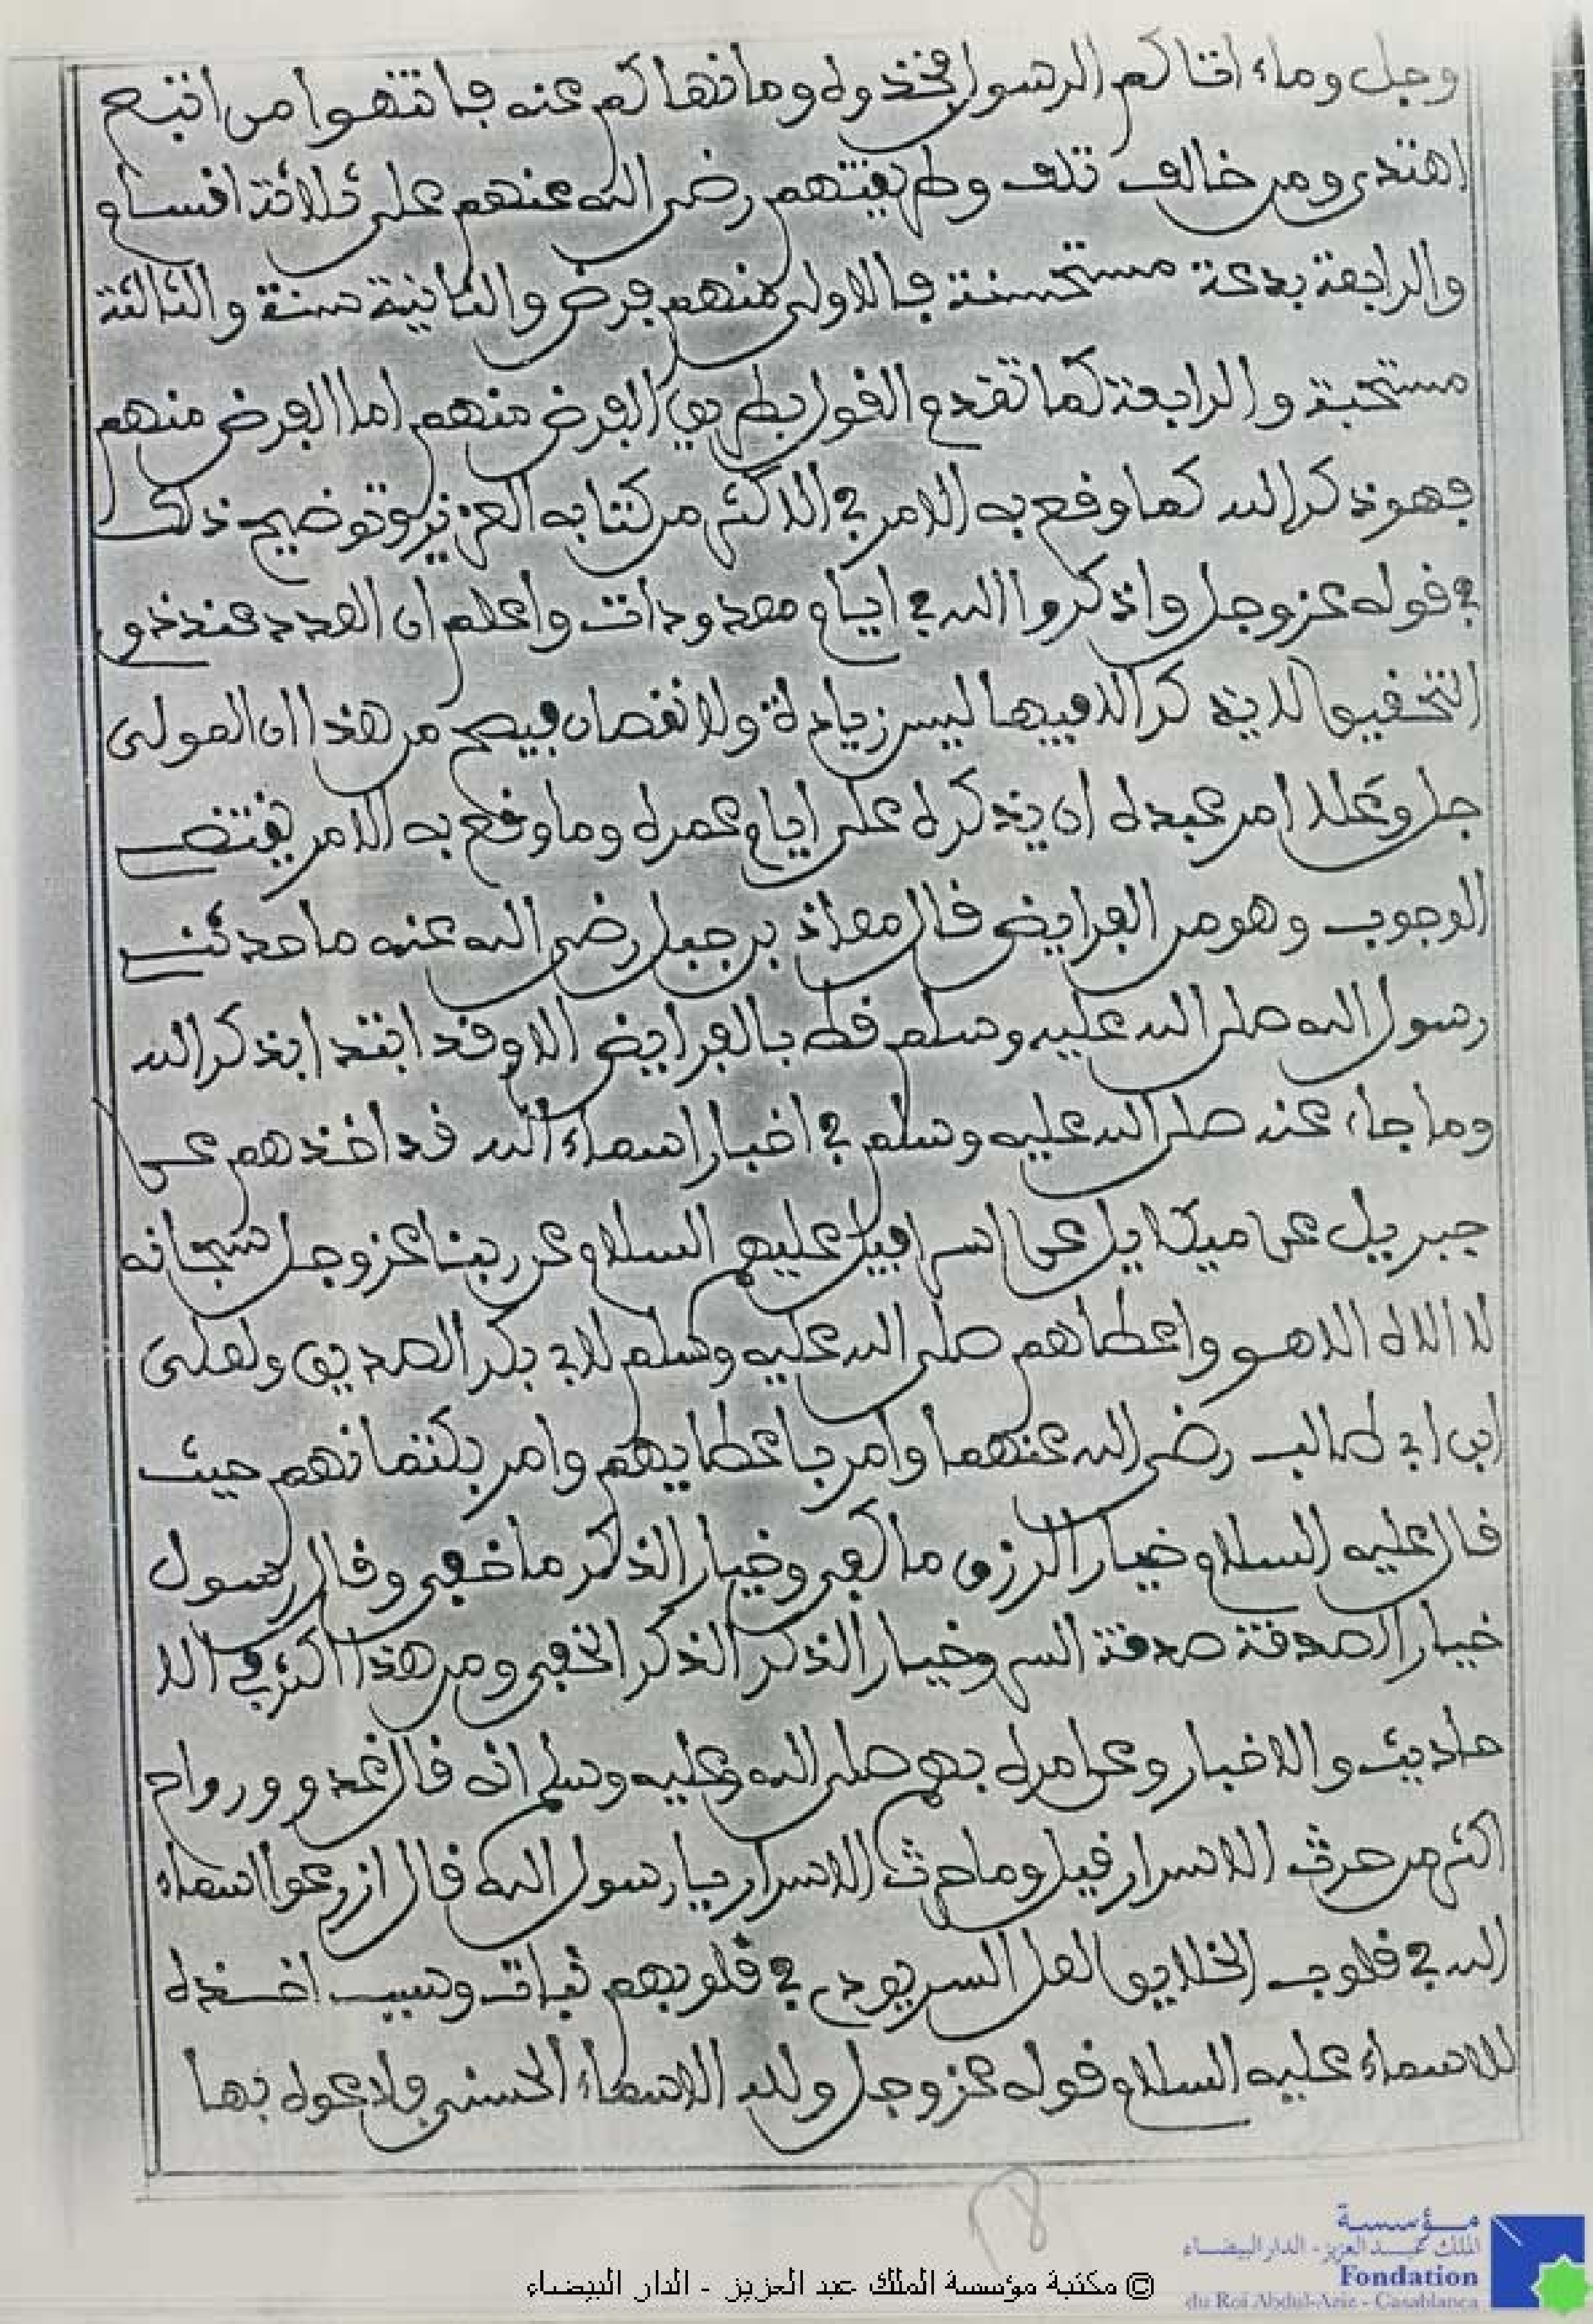 وجل وماء اتاكم الرسول فخذوه وما نهاكم عنه فانتهوا من اتبع
اهتدى ومن خالف تلف وطريقتهم رضي الله عنهم على ثلاثة اقسام
والرابعة بدعة مستحسنة فالاولى منهم فرض والثانية سنة والثالثة
مستحبة والرابعة كما تقدم القول بطريق الفرض منهم اما الفرض منهم
فهو ذكر الله كما وقع به الامر في الاكثر من كتابه العزيز وتوضيح ذلك
في قوله عز وجل واذكروا الله في ايام معدودات واعلم ان العدد عند ذو
التحقيق الذي ذكر الله فيها ليس زيادة ولا نقصان فيصح من هذا ان المولى
جل وعلا امر عبده ان يذكره على ايام عمره وما وقع به الامر يقتضي
الوجوب وهو من الفرايض قال معاذ بن جبل رضي الله عنه ما حدثني
رسول الله صلى الله عليه وسلم قط بالفرايض الا وقد ابتدا بذكر الله
وما جاء عنه صلى الله عليه وسلم في اخبار اسماء الله قد اخذهم عن
جبريل عن ميكايل عن اسرافيل عليهم السلام عن ربنا عز وجل سبحانه
لا الاه الا هو واعطاهم صلى الله عليه وسلم لابي بكر الصديق ولعلى
ابن ابي طالب رضي الله عنهما وامر باعطايهم وامر بكتمانهم حيث
قال عليه السلام خيار الرزق ما كفى وخيار الذكر ما خفي وقال رسول
خيار الصدقة صدقة السر وخيار الذكر الذكر الخفي ومن هذا اكثر في الا
حاديث والاخبار وعن امره بهم صلى الله عليه وسلم انه قال غدو ورواح
اكثر من حرث الاسرار قيل وما حرث الاسرار يا رسول الله قال ازرعوا اسماء
الله في قلوب الخلايق لعل السر يودع في قلوبهم ثبات وسبب اخذه
للاسماء عليه السلام قوله عز وجل ولله الاسماء الحسنى فادعوه بها
18
مؤسسة
الملك عبد العزيز - الدار البيضاء
Fondation
du Roi Abdul-Aziz - Casablanca
© مكتبة مؤسسة الملك عبد العزيز - الدار البيضاء